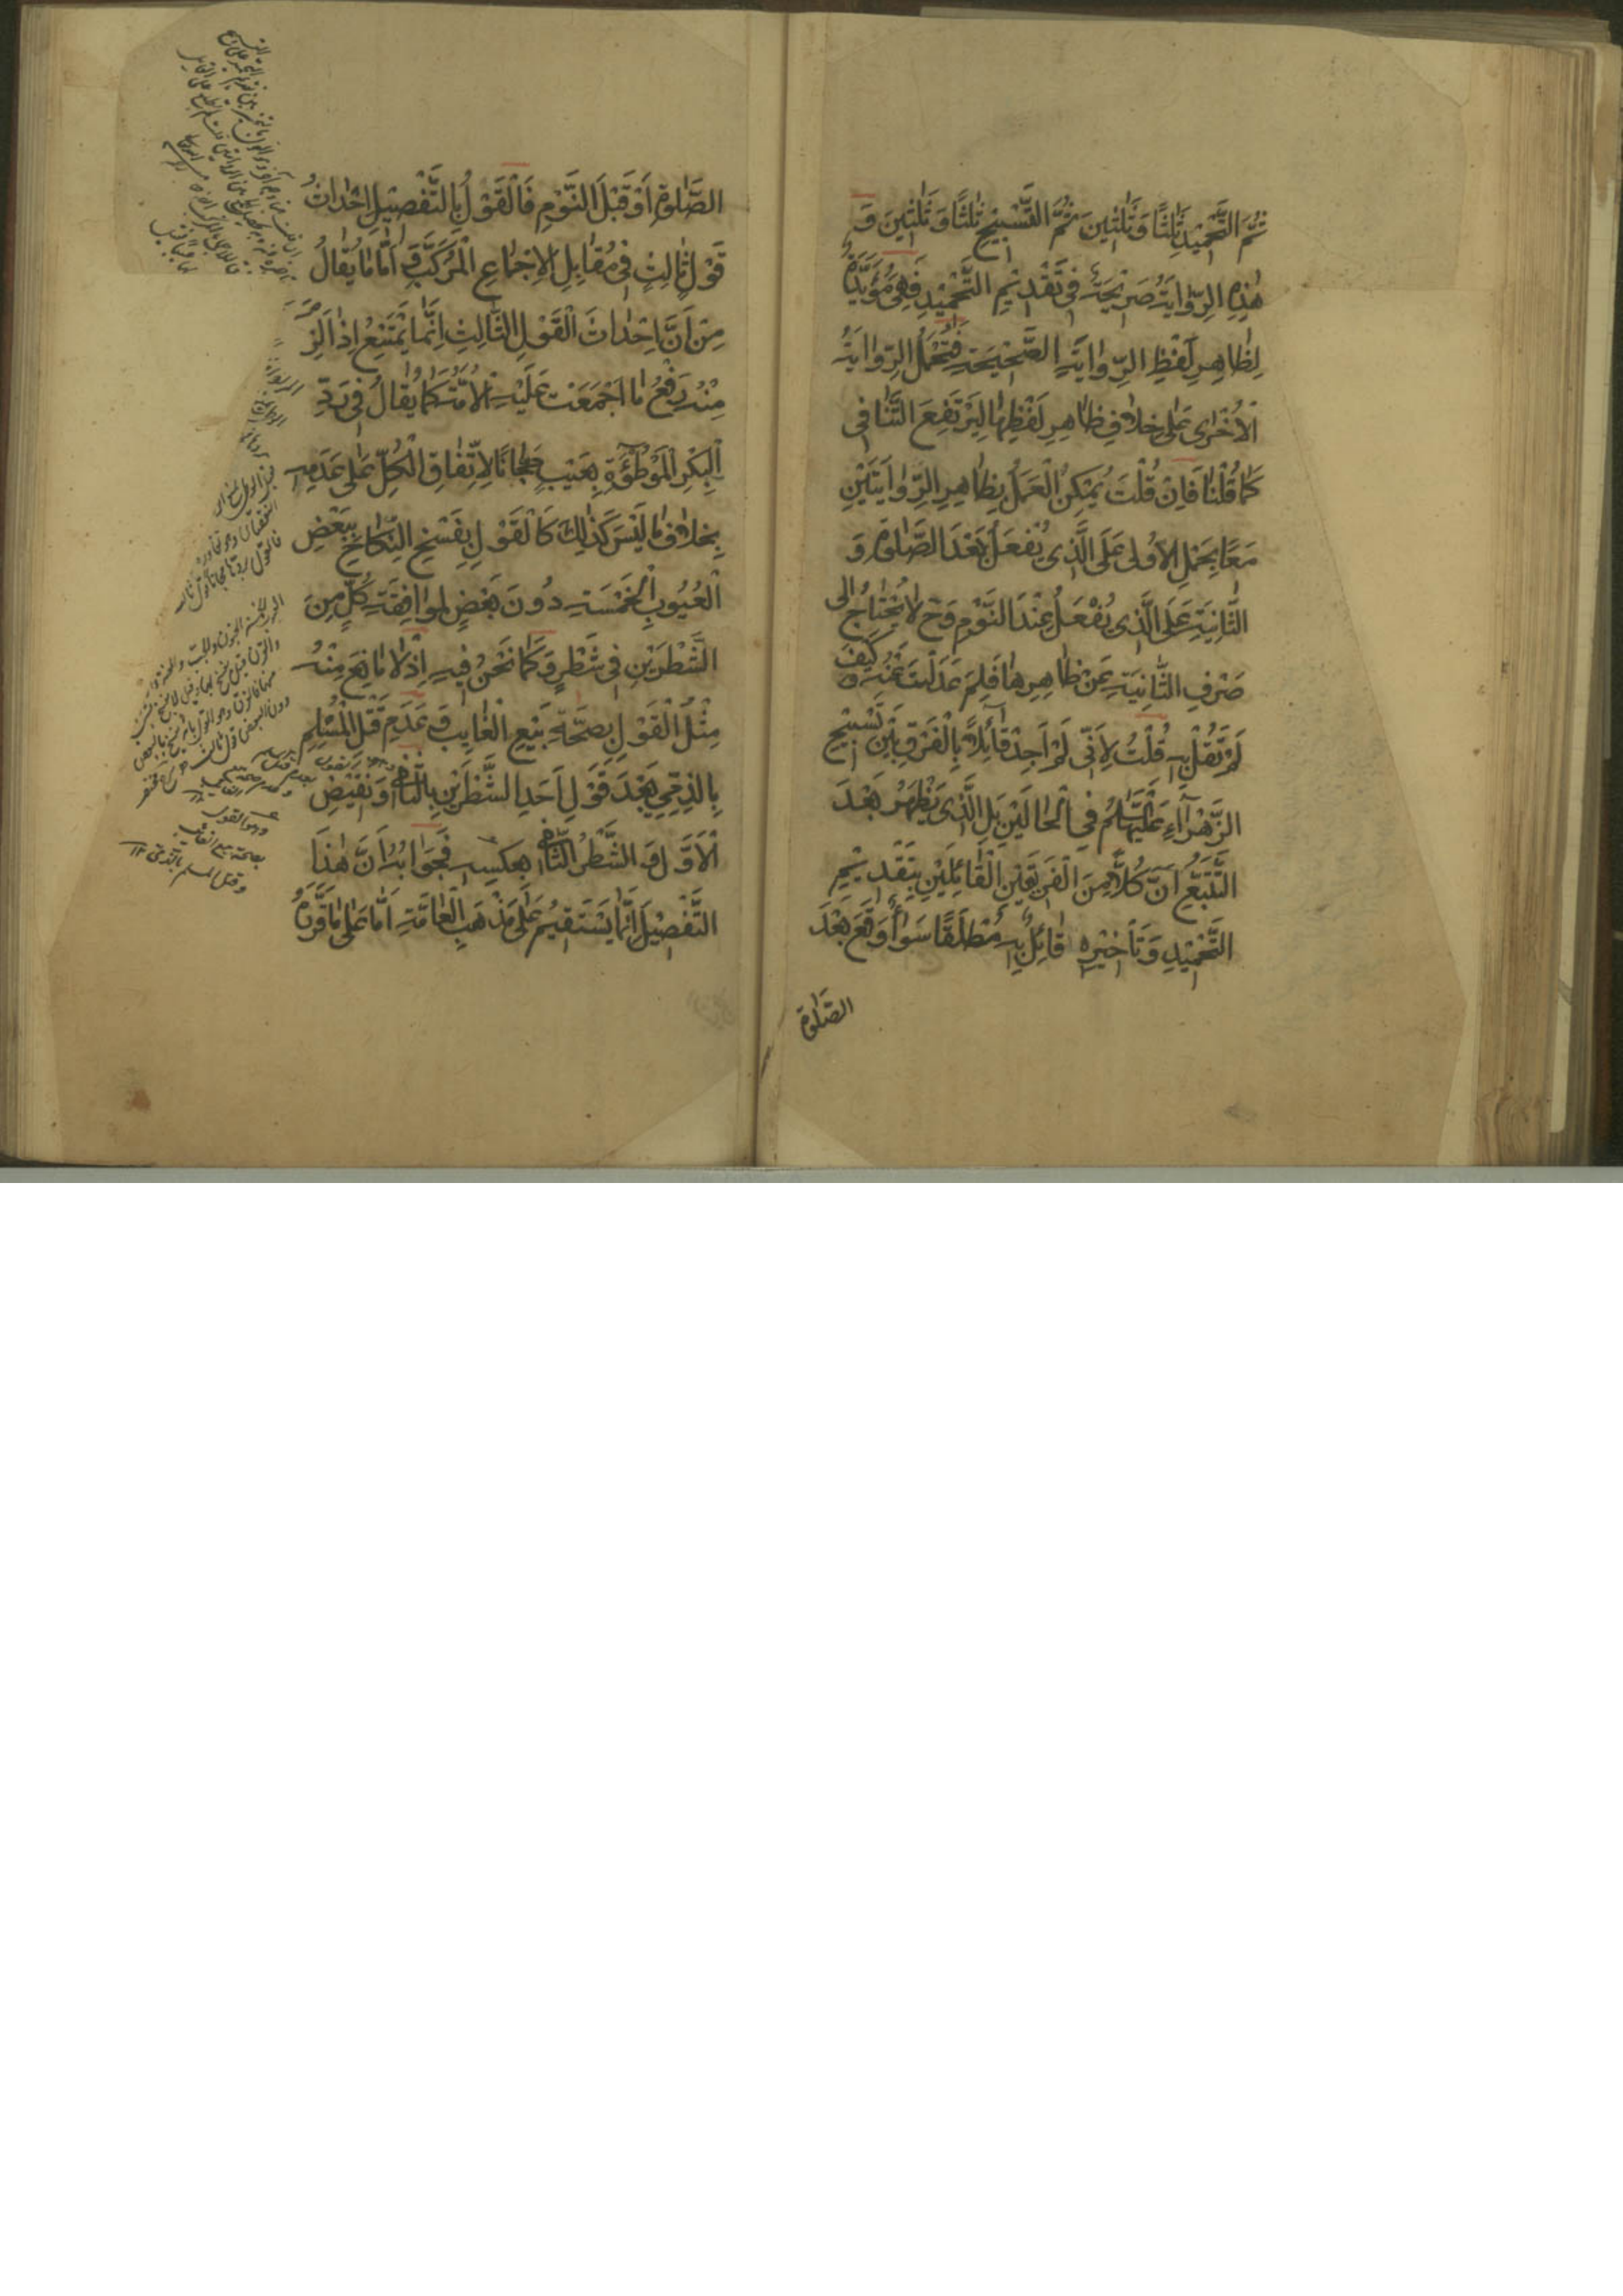 ثُمَّ التَّحْمِيْدِ ثَلٰثًا وَثَلٰثِيْنَ ثُمَّ التَّسْبِيْحِ ثَلٰثًا وَثَلٰثِيْنَ وَ
هٰذِهِ الرِّوَايَةُ صَرِيْحَةٌ فِي تَقْدِيْمِ التَّحْمِيْدِ فَهِيَ مُؤَيِّدَةٌ
لِظَاهِرِ لَفْظِ الرِّوَايَةِ الصَّحِيْحَةِ فَتُحْمَلُ الرِّوَايَةُ
الْاُخْرٰى عَلٰى خِلَافِ ظَاهِرِ لَفْظِهَا لِيَرْتَفِعَ التَّنَافِي
كَمَا قُلْنَا فَاِنْ قُلْتَ يُمْكِنُ الْعَمَلُ بِظَاهِرِ الرِّوَايَتَيْنِ
مَعًا بِحَمْلِ الْاُولٰى عَلَى الَّذِي يُفْعَلُ بَعْدَ الصَّلٰوةِ وَ
الثَّانِيَةِ عَلَى الَّذِي يُفْعَلُ عِنْدَ النَّوْمِ وَح لَا يُحْتَاجُ اِلٰى
صَرْفِ الثَّانِيَةِ عَنْ ظَاهِرِهَا فَلِمَ عَدَلْتَ عَنْهُ وَ كَيْفَ
لَمْ تَقُلْ بِهِ قُلْتُ لِاَنِّي لَمْ اَجِدْ قَائِلًا بِالْفَرْقِ بَيْنَ تَسْبِيْحِ
الزَّهْرَآءِ عَلَيْهَا السَّلَامُ فِي الْحَالَيْنِ بَلِ الَّذِي يَظْهَرُ بَعْدَ
التَّتَبُّعِ اَنَّ كُلًّا مِنَ الْفَرِيْقَيْنِ الْقَائِلَيْنِ بِتَقْدِيْمِ
التَّحْمِيْدِ وَتَاْخِيْرِهِ قَائِلٌ بِهِ مُطْلَقًا سَوَاءٌ وَقَعَ بَعْدَ
الصَّلٰوةِ
الصَّلٰوةِ اَوْ قَبْلَ النَّوْمِ فَالْقَوْلُ بِالتَّفْصِيْلِ اِحْدَاثُ
قَوْلٍ ثَالِثٍ فِي مُقَابِلِ الْاِجْمَاعِ الْمُرَكَّبِ وَ اَمَّا مَا يُقَالُ
مِنْ اَنَّ اِحْدَاثَ الْقَوْلِ الثَّالِثِ اِنَّمَا يَمْتَنِعُ اِذَا لَزِمَ
مِنْهُ رَفْعُ مَا اَجْمَعَتْ عَلَيْهِ الْاُمَّةُ كَمَا يُقَالُ فِي رَدِّ
الْبِكْرِ الْمَوْطُوْءَةِ بِعَيْبٍ مَجَّانًا لِاتِّفَاقِ الْكُلِّ عَلٰى عَدَمِهِ
بِخِلَافِ مَا لَيْسَ كَذٰلِكَ كَالْقَوْلِ بِفَسْخِ النِّكَاحِ بِبَعْضِ
الْعُيُوْبِ الْخَمْسَةِ دُوْنَ بَعْضٍ لِمُوَافَقَةِ كُلٍّ مِنَ
الشَّطْرَيْنِ فِي شَطْرٍ وَ كَمَا نَحْنُ فِيْهِ اِذْ لَا مَانِعَ مِنْهُ
مِثْلُ الْقَوْلِ بِصِحَّةِ بَيْعِ الْغَايِبِ وَ عَدَمِ قَتْلِ الْمُسْلِمِ
بِالذِّمِّيِ بَعْدَ قَوْلِ اَحَدِ الشَّطْرَيْنِ بِالثَّانِي وَ نَقِيْضِ
الْاَوَّلِ وَ الشَّطْرُ الثَّانِي بِعَكْسِهِ فَجَوَابُهُ اَنَّ هٰذَا
التَّفْصِيْلَ اِنَّمَا يَسْتَقِيْمُ عَلٰى مَذْهَبِ الْعَامَّةِ اَمَّا عَلٰى مَا قَرَّرَهُ
وهو القول
بصحة بيع الغائب
وقتل المسلم بالذمي ١٢